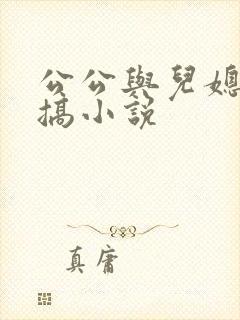 公公與兒媳
搞小説
真庸